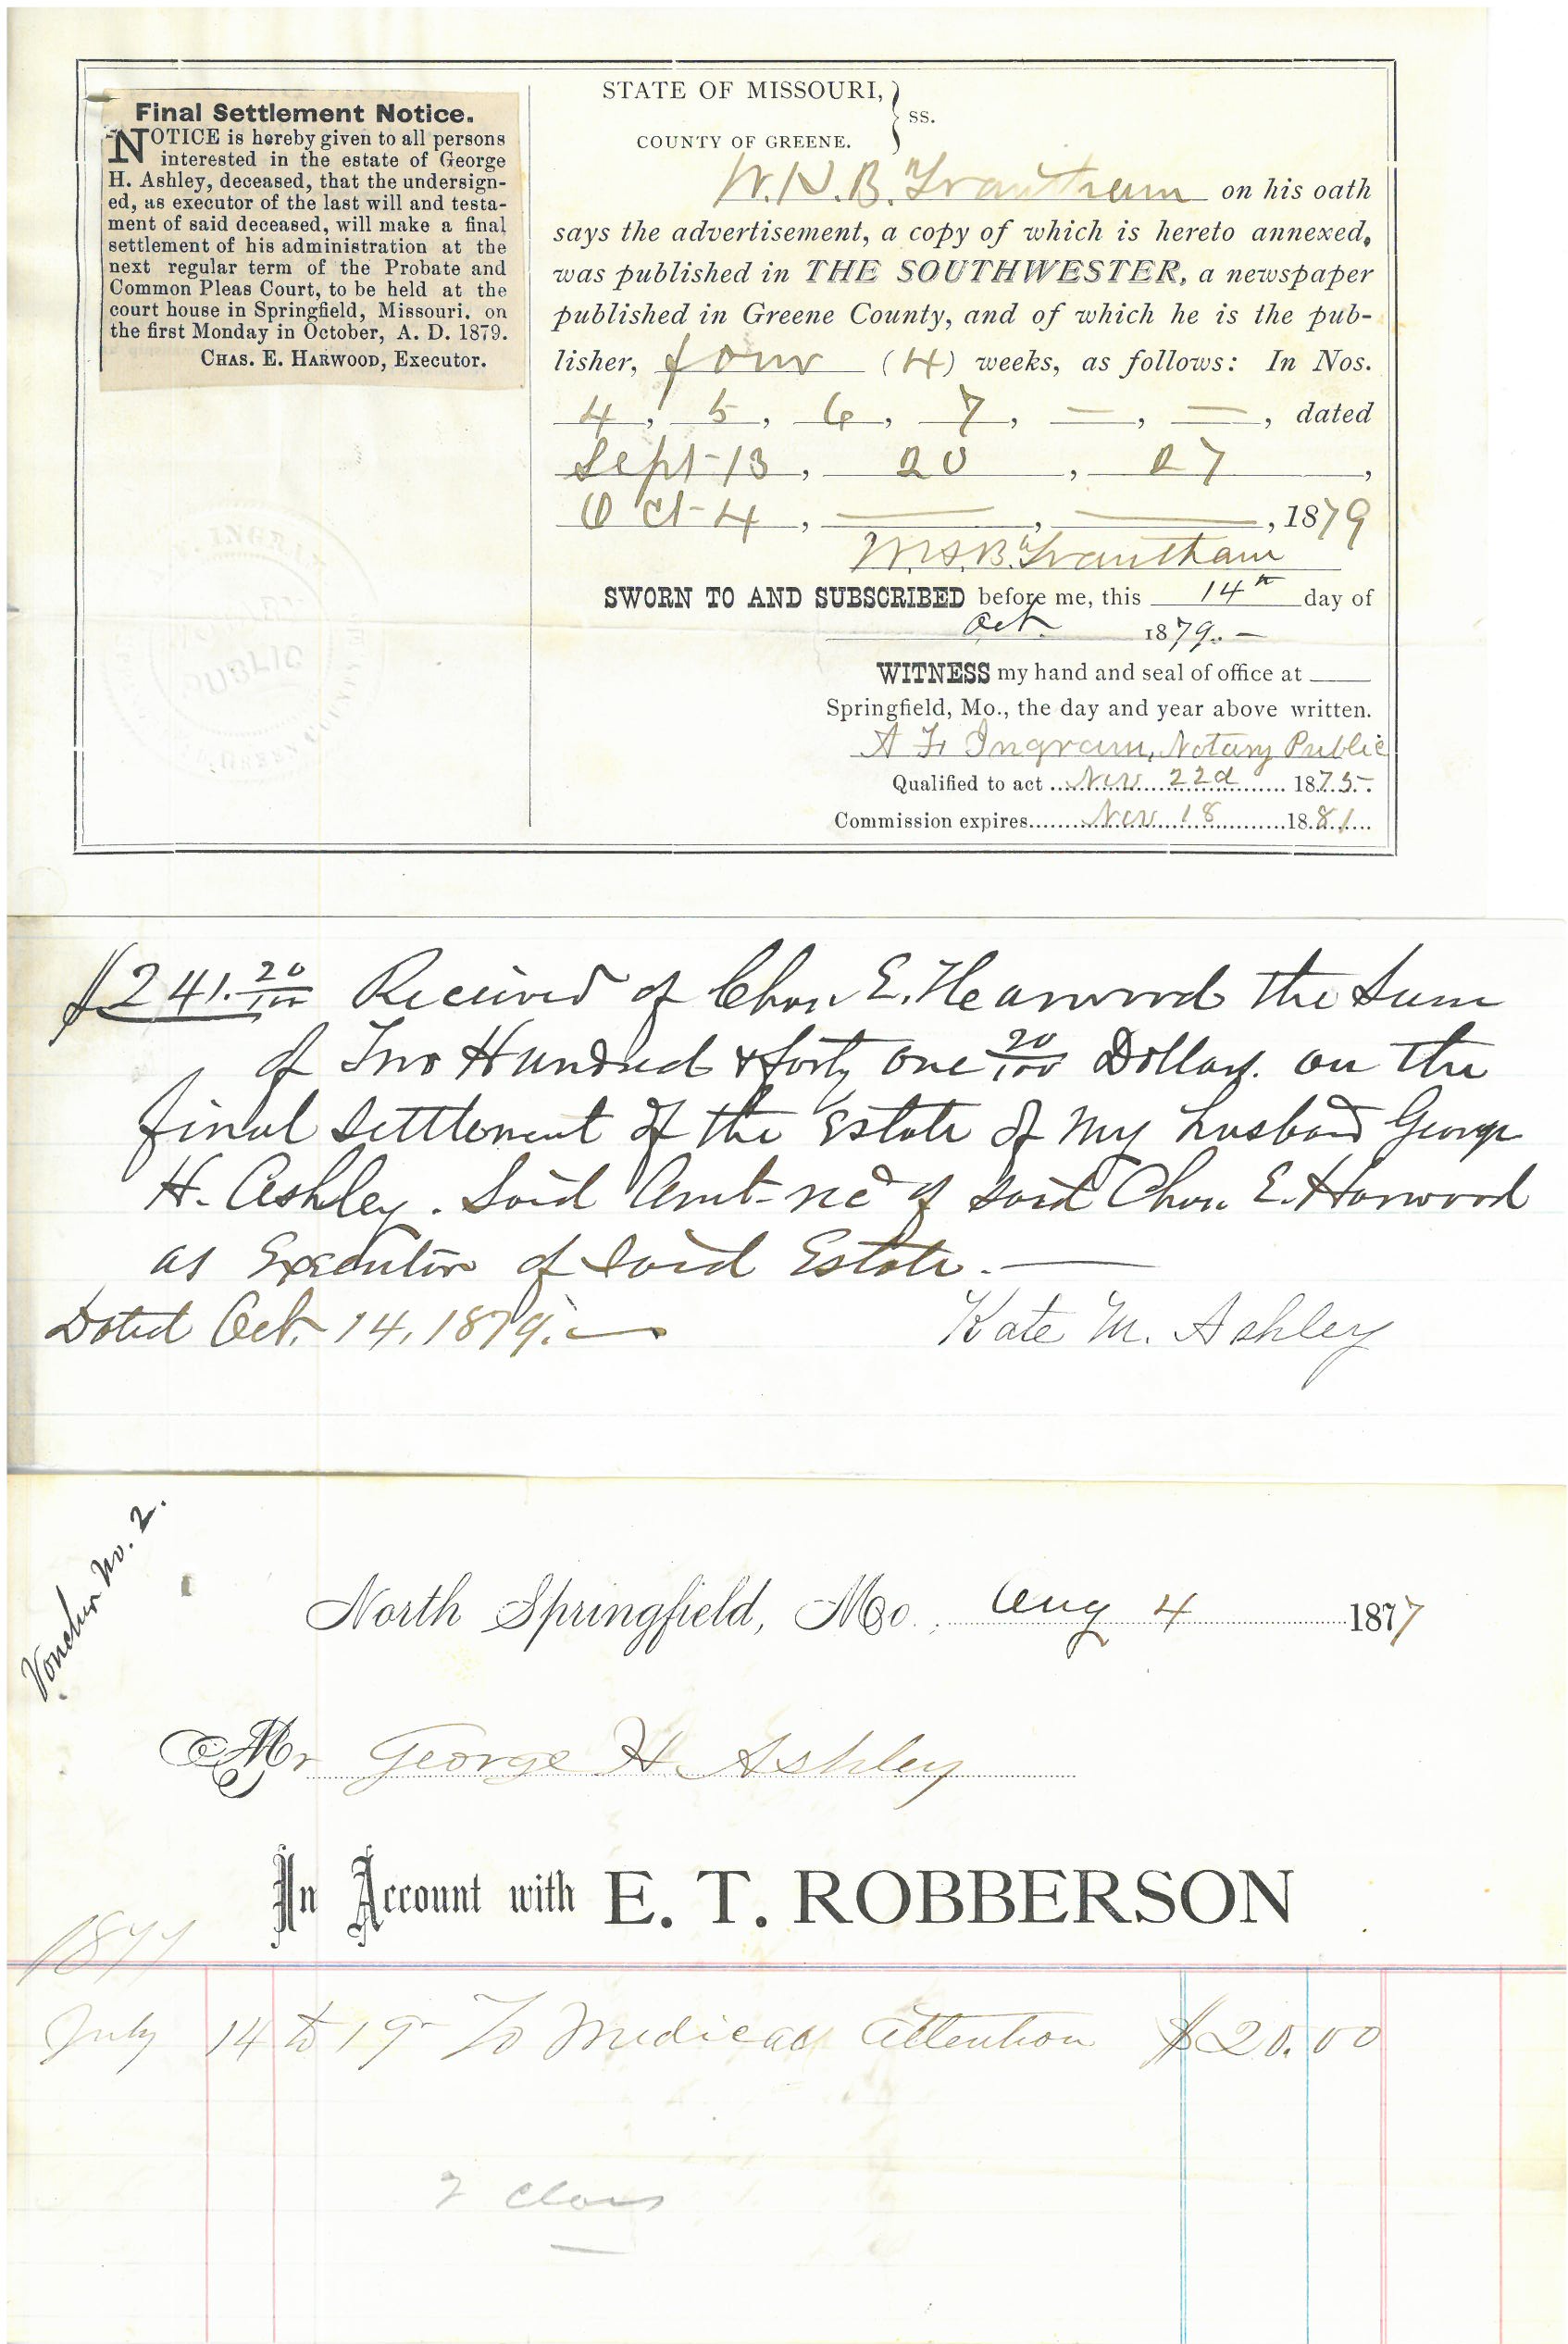 Final Settlement Notice.
NOTICE is hereby given to all persons
interested in the estate of George
H. Ashley, deceased, that the undersign-
ed, as executor of the last will and testa-
ment of said deceased, will make a final
settlement of his administration at the
next regular term of the Probate and
Common Pleas Court, to be held at the
court house in Springfield, Missouri, on
the first Monday in October, A. D. 1879.
CHAS. E. HARWOOD, Executor.
STATE OF MISSOURI, } ss.
COUNTY OF GREENE.
W. H. B. Trantham on his oath
says the advertisement, a copy of which is hereto annexed,
was published in THE SOUTHWESTER, a newspaper
published in Greene County, and of which he is the pub-
lisher, four (4) weeks, as follows: In Nos.
4, 5, 6, 7, —, —, dated
Sept-13, 20, 27,
Oct-4, —, —, 1879
W.H.B. Trantham
SWORN TO AND SUBSCRIBED before me, this 14th day of
Oct. 1879.—
WITNESS my hand and seal of office at
Springfield, Mo., the day and year above written.
A F. Ingram, Notary Public
Qualified to act Nov 22d 1875
Commission expires Nov 18 1881
PUBLIC
$241.20/100 Received of Chas E. Hearwood the Sum
of Two Hundred & forty one 20/100 Dollars. on the
final settlement of the Estate of my husband George
H. Ashley. Said Amt- recd of said Chas. E. Harwood
as Executor of said Estate.—
Dated Oct. 14, 1879.—
Kate M. Ashley
Voucher No. 2.
North Springfield, Mo., Aug 4 1877
Mr George H. Ashley
In Account with E. T. ROBBERSON
1877
July 14 to 19 To Medical attention $20.00
2 Class